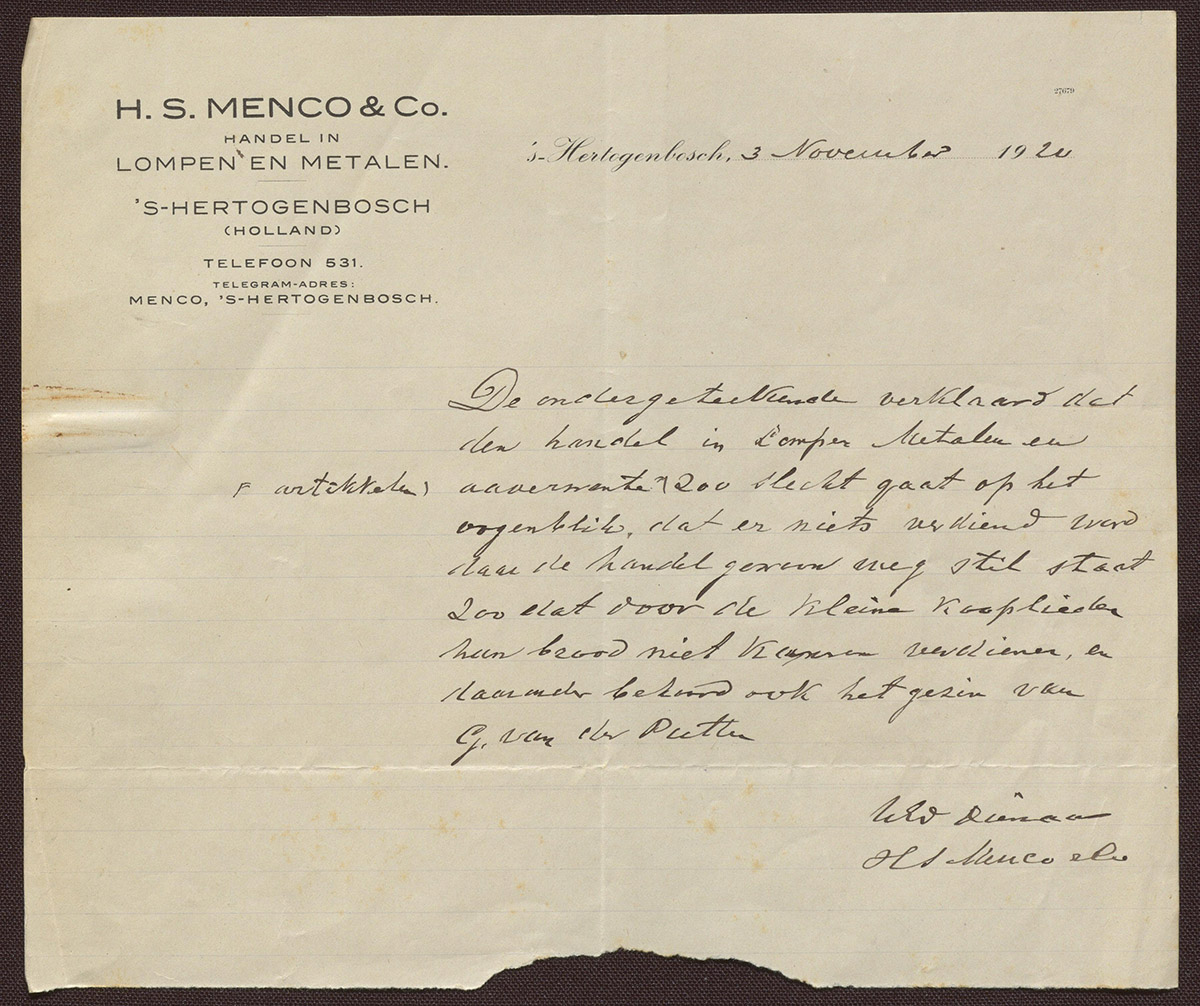 27679
H. S. MENCO & Co.
HANDEL IN
LOMPEN EN METALEN.
'S-HERTOGENBOSCH
(HOLLAND)
TELEFOON 531.
TELEGRAM-ADRES:
MENCO, 'S-HERTOGENBOSCH.
's-Hertogenbosch, 3 November 1920
De ondergeteekende verklaard dat
den handel in Lompen Metalen en
artikkelen
aaverwante zoo slecht gaat op het
oogenblik, dat er niets verdiend word
daar de handel gewoon weg stil staat
zoo dat door de kleine kooplieden
hun brood niet kunnen verdienen, en
daaronder behoord ook het gezin van
G. van der Putten
UEd Dienaar
H S Menco & Co